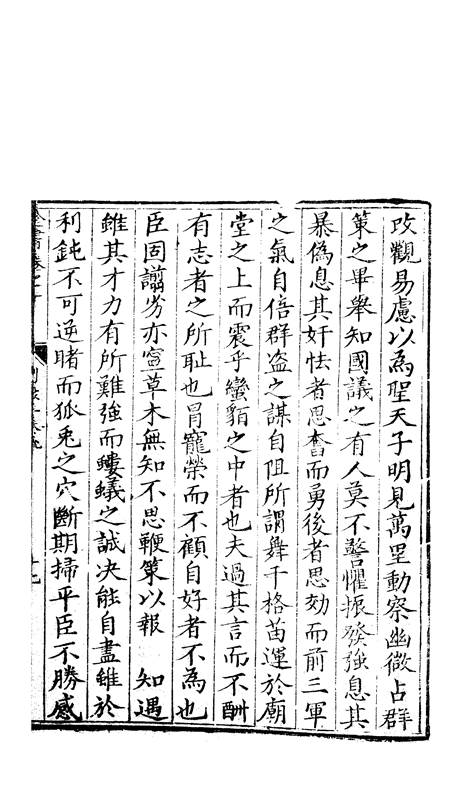 改觀易慮以為聖天子明見萬里動察幽微占群
策之畢舉知國議之有人莫不警懼振發強息其
暴偽息其奸怯者思奮而勇後者思効而前三軍
之氣自倍群盗之謀自阻所謂舞干格苗運於廟
堂之上而震乎蠻貊之中者也夫過其言而不酬
有志者之所耻也冐寵榮而不顧自好者不為也
臣固譾劣亦寧草木無知不思鞭策以報　知遇
雖其才力有所難強而螻蟻之誠决能自盡雖於
利鈍不可逆睹而狐兎之穴斷期掃平臣不勝感